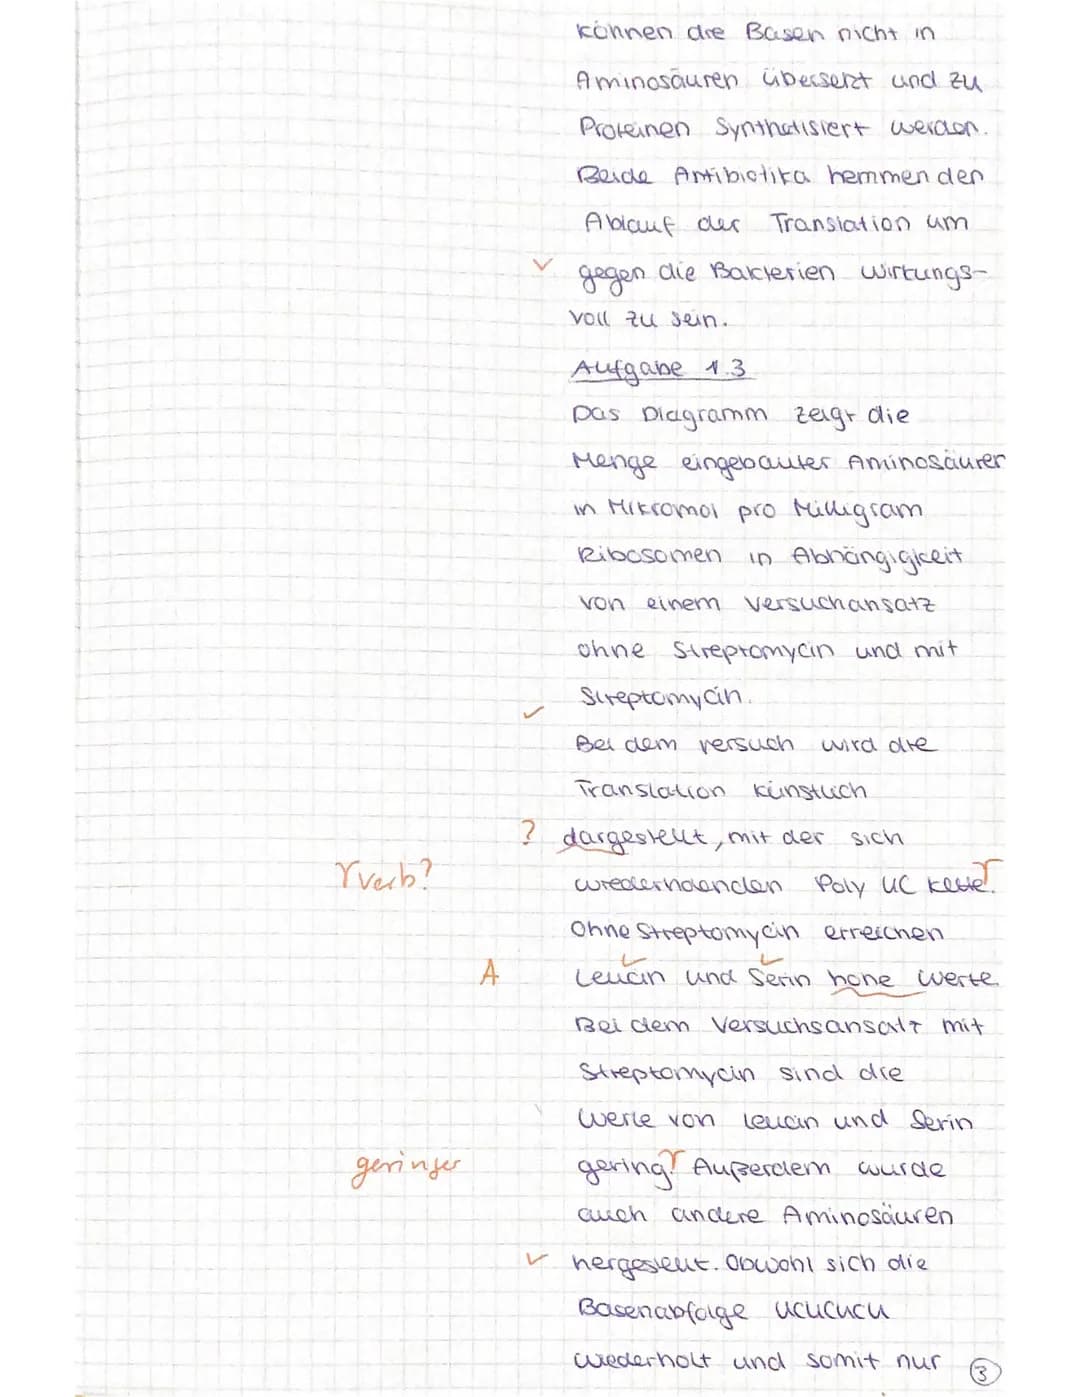 können die Basen nicht in
Aminosäuren übersetzt und zu
Proteinen Synthetisiert werden.
Beide Antibiotika hemmen den
Ablauf der Translation um
✓ gegen die Bakterien wirkungs-
voll zu sein.
Aufgabe 1.3
Das Diagramm zeigt die
Menge eingebauter Aminosäuren
in Mikromol pro Milligram
Ribosomen in Abhängigkeit
von einem Versuchansatz
ohne Streptomycin und mit
✓ Streptomycin.
Bei dem Versuch wird die
Translation künstlich
? dargestellt, mit der sich
Verb? wiederholenden Poly UC Kette.
Ohne Streptomycin erreichen
A Leucin und Serin hohe Werte.
Bei dem Versuchsansatz mit
Streptomycin sind die
Werte von Leucin und Serin
geringer gering. Außerdem wurde
auch andere Aminosäuren
✓ hergestellt. Obwohl sich die
Basenabfolge UCUCUCU
wiederholt und somit nur 3